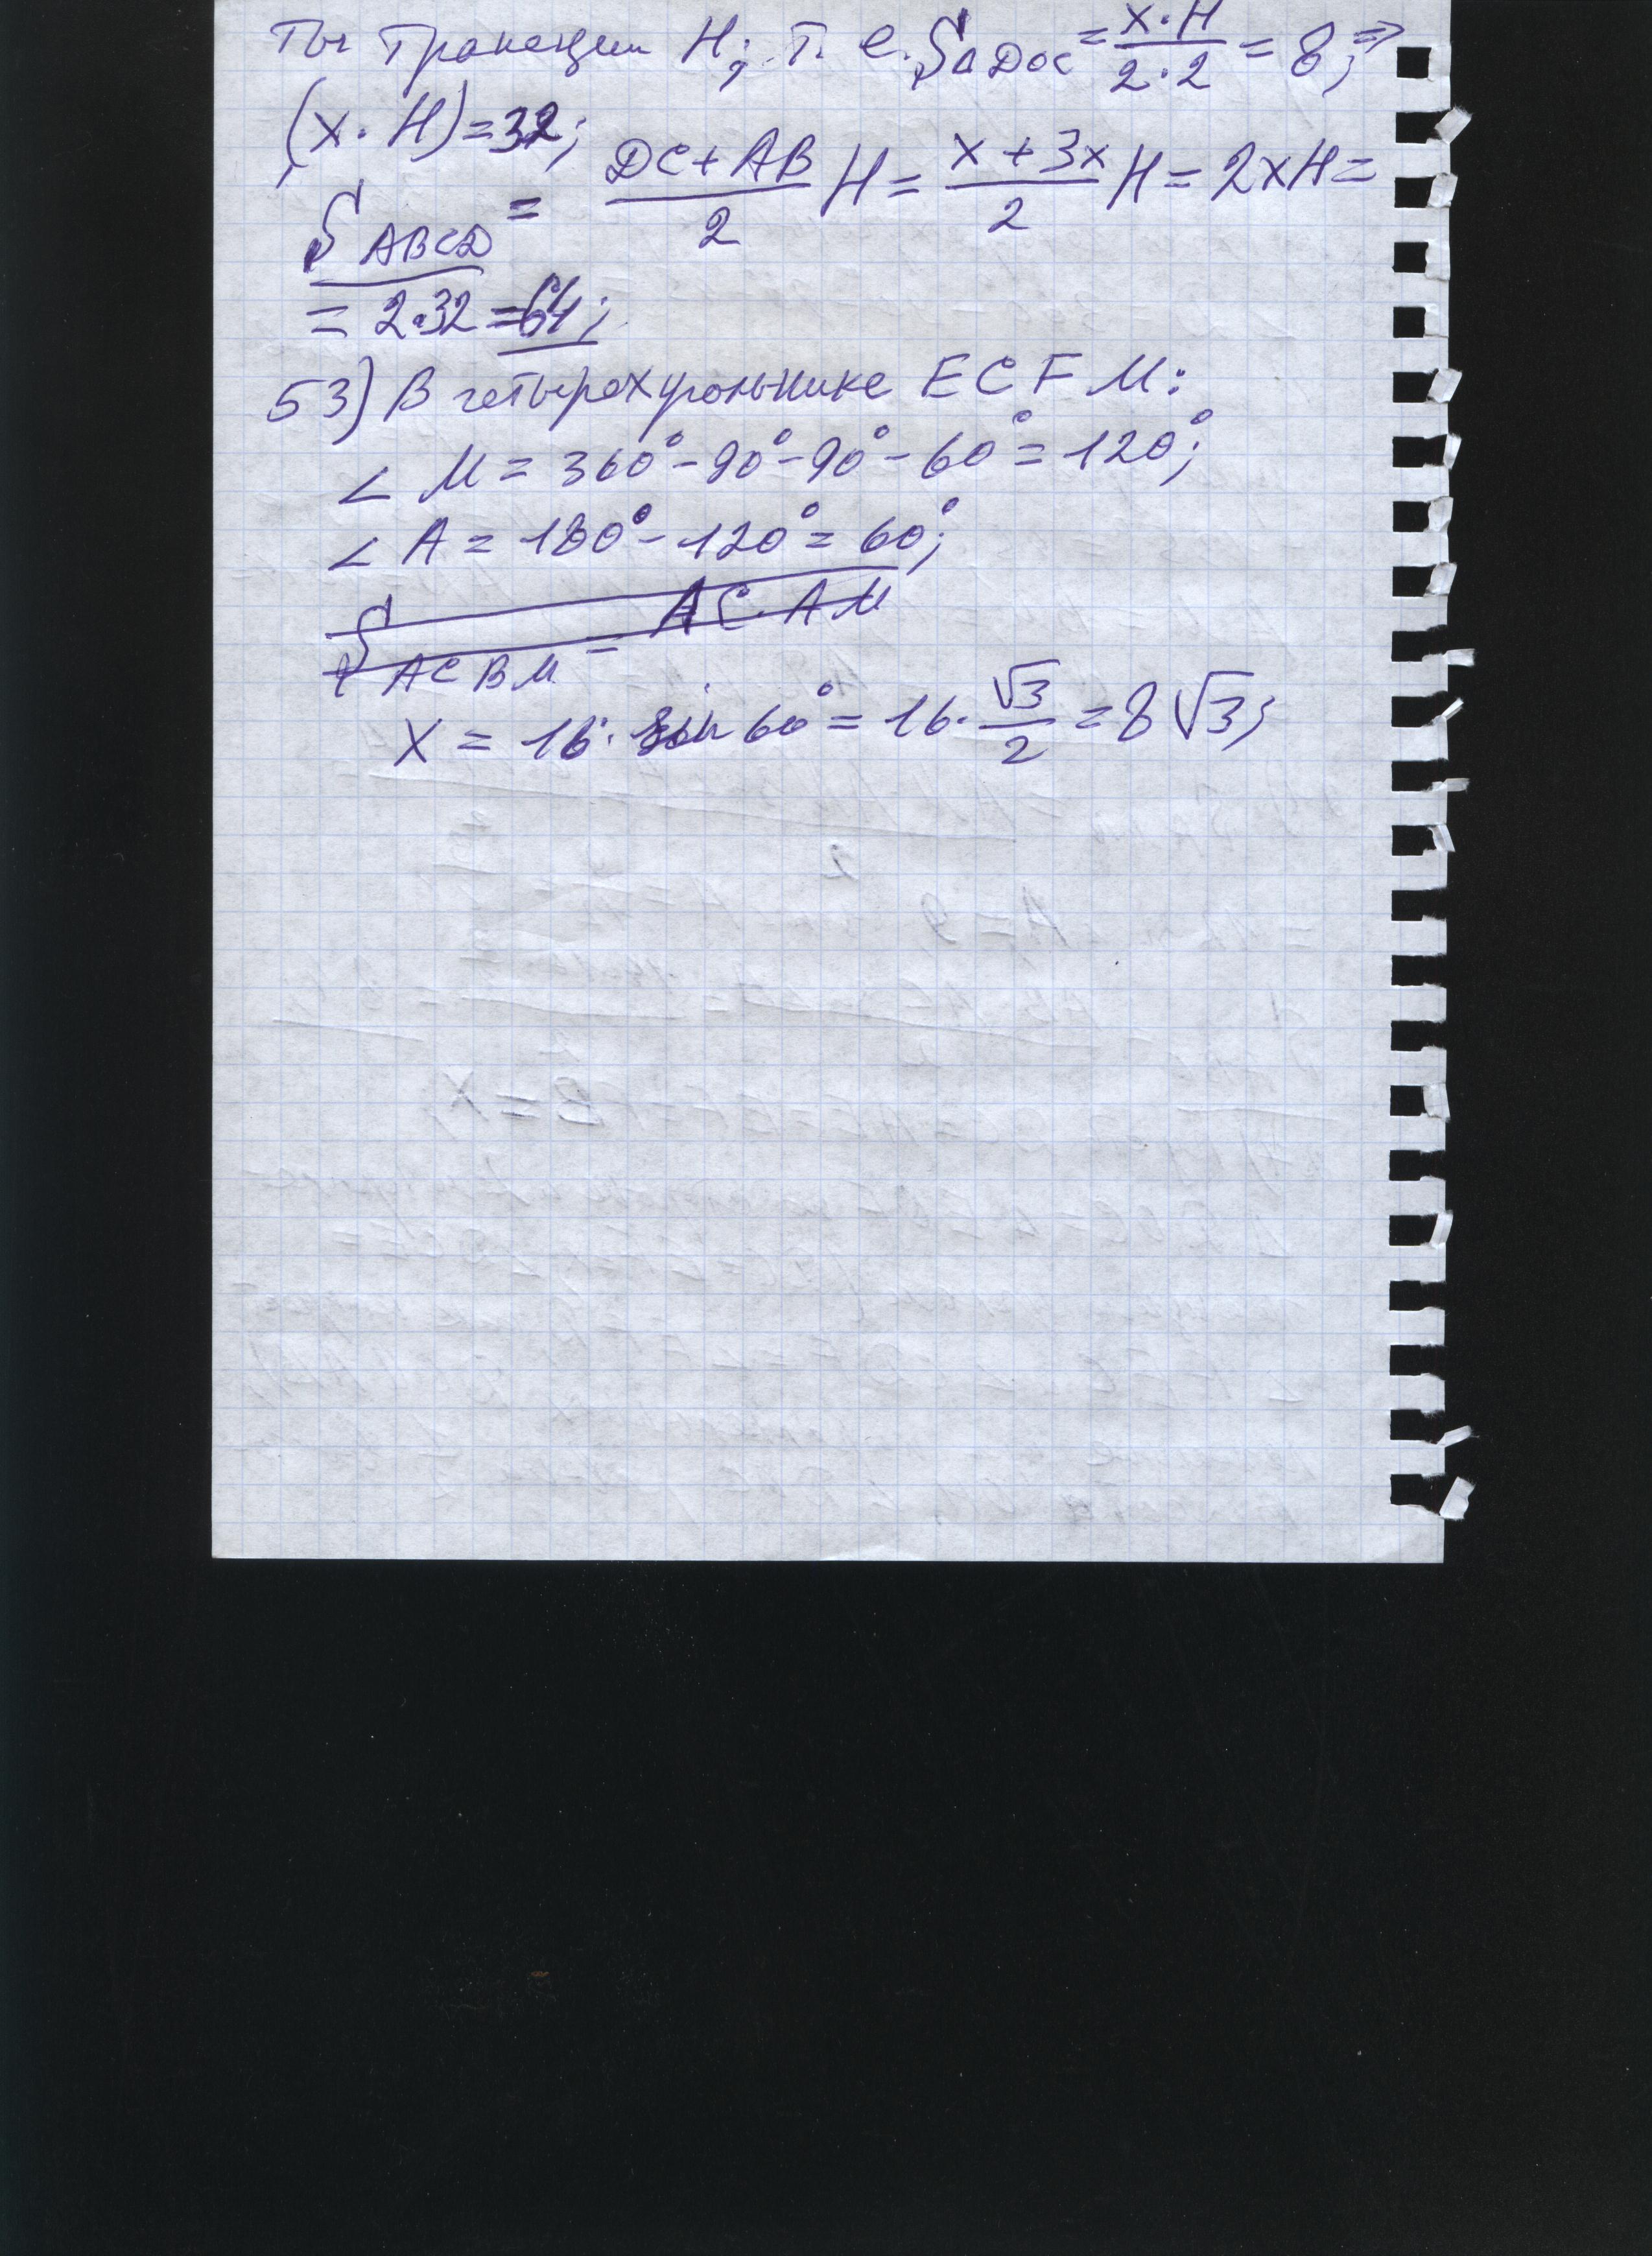 ты трапеции H; т. е. S△DOC = x·H / 2·2 = 8; ⇒
(x·H) = 32;
S ABCD = DC + AB / 2 H = x + 3x / 2 H = 2xH =
= 2·32 = 64;
53) В четырехугольнике ECFM:
∠ M = 360° - 90° - 90° - 60° = 120°;
∠ A = 180° - 120° = 60°;
S ACBM = AC·AM
x = 16 · sin 60° = 16 · √3 / 2 = 8√3;